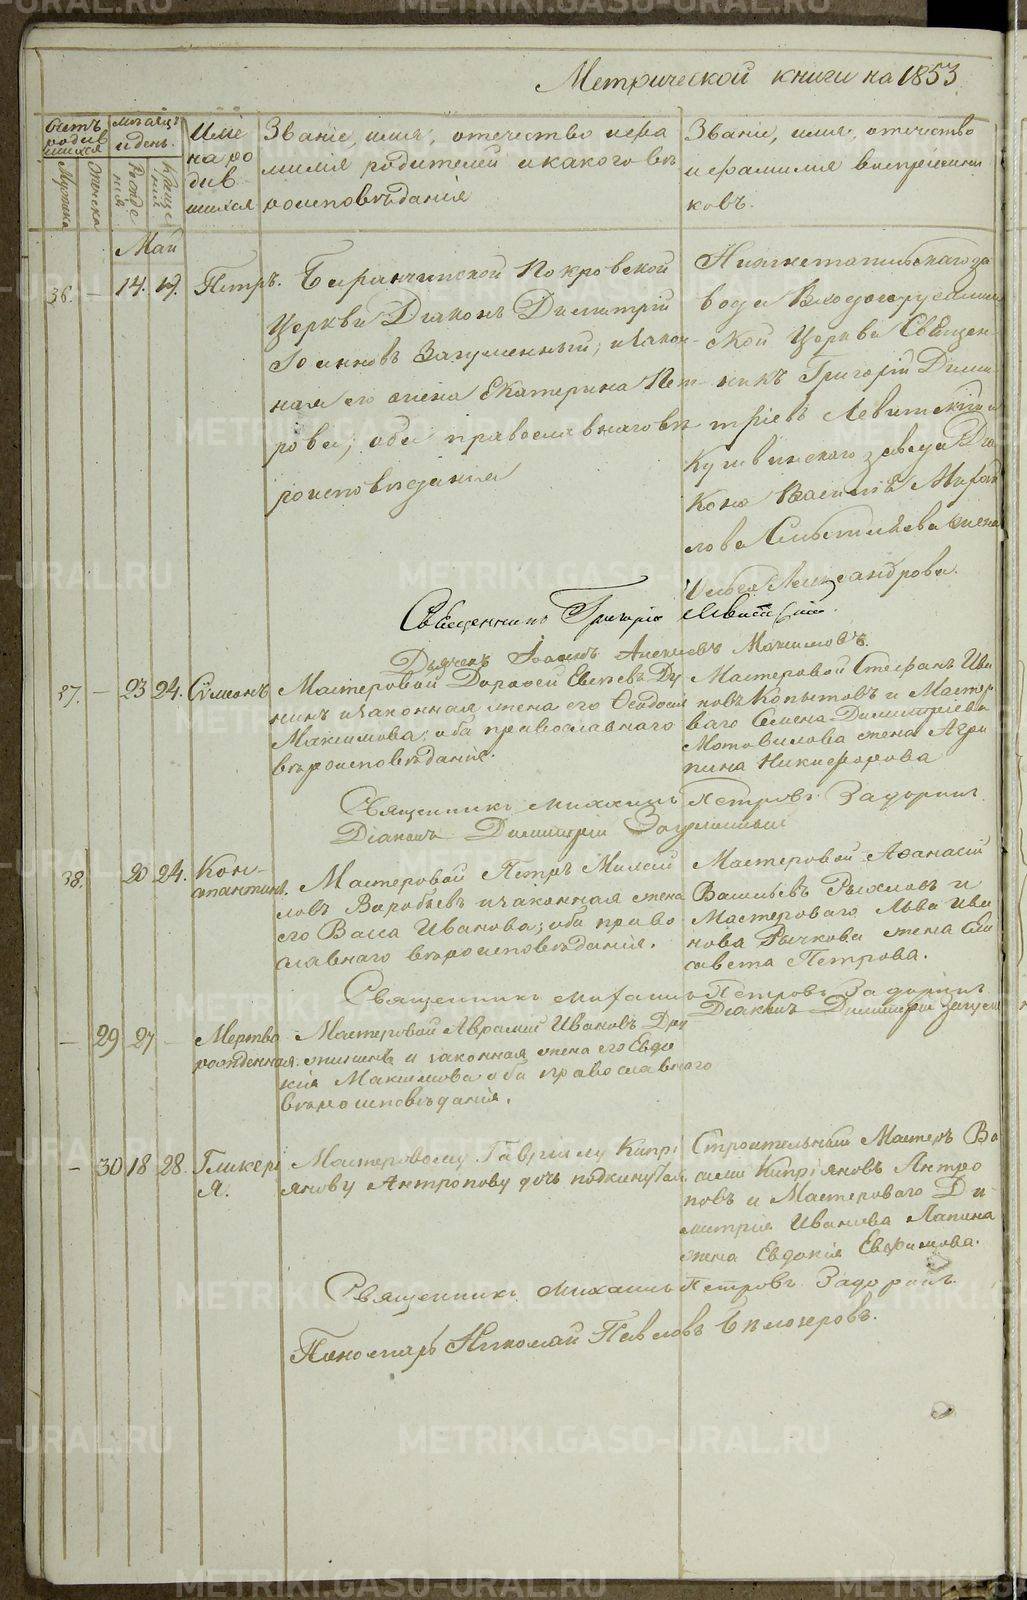 Метрической книги на 1853
Счетъ родившихся
мѣсяцъ и день.
Мужска
Женска
Рожде
нія
Креще
нія
Име
на ро
див
шихся
Званіе, имя, отечество и фа
милія родителей и какого вѣ
роисповѣданія
Званіе, имя, отечество
и фамилія воспріемни
ковъ.
Май
36. — 14. 17. Петръ.
Баранчинской Покровской
Церкви Діаконъ Димитрій
Іоанновъ Загуменный, и закон-
ная его жена Екатерина Пет-
рова; оба православнаго вѣ
роисповѣданія
Нижнетагильскаго за
вода Входоіерусалим
ской Церкви Священ-
никъ Григорій Дими
тріевъ Левитскій и
Кушвинскаго завода Діа
кона Василія Михай
лова жена
Александрова.
Священникъ Григорій Левитскій.
Дьячекъ Іоаннъ Алексѣевъ Максимовъ.
37. — 23 24. Сѵмеонъ
Мастеровой Дорофей Евсѣевъ
и законная жена его Ѳеодосія
Максимова; оба православнаго
вѣроисповѣданія.
Мастеровой Стефанъ Ива
новъ Копытовъ и Мастер
ваго Семена Димитріева
Мотовилова жена Агри
пина Никифорова
Священникъ Михаилъ Петровъ Задоринъ
Діаконъ Димитрій Загуменный
38. 20 24. Кон-
стантинъ.
Мастеровой Петръ Михай
ловъ Воробьевъ и законная жена
его Васса Иванова; оба право
славнаго вѣроисповѣданія.
Мастеровой Аѳанасій
Васильевъ Рыхловъ и
Мастероваго Льва Ива
нова Рычкова жена Ели
савета Петрова.
Священникъ Михаилъ Петровъ Задоринъ
Діаконъ Димитрій Загумен
— 29 27 — Мертво
рожденная.
Мастеровой Аврамій Ивановъ
и законная жена его Евдо
кія Максимова оба православнаго
вѣроисповѣданія.
— 30 18 28. Гликері
я.
Мастеровому Гавриилу Кипрі
янову Антропову дочь подкинутая.
Строительный Мастеръ Ва
силій Кипріяновъ Антро
повъ и Мастероваго Ди
митрія Иванова Лапина
жена Евдокія Евфимова.
Священникъ Михаилъ Петровъ Задоринъ.
Пономарь Николай Павловъ Бѣлозеровъ.
METRIKI.GASO-URAL.RU